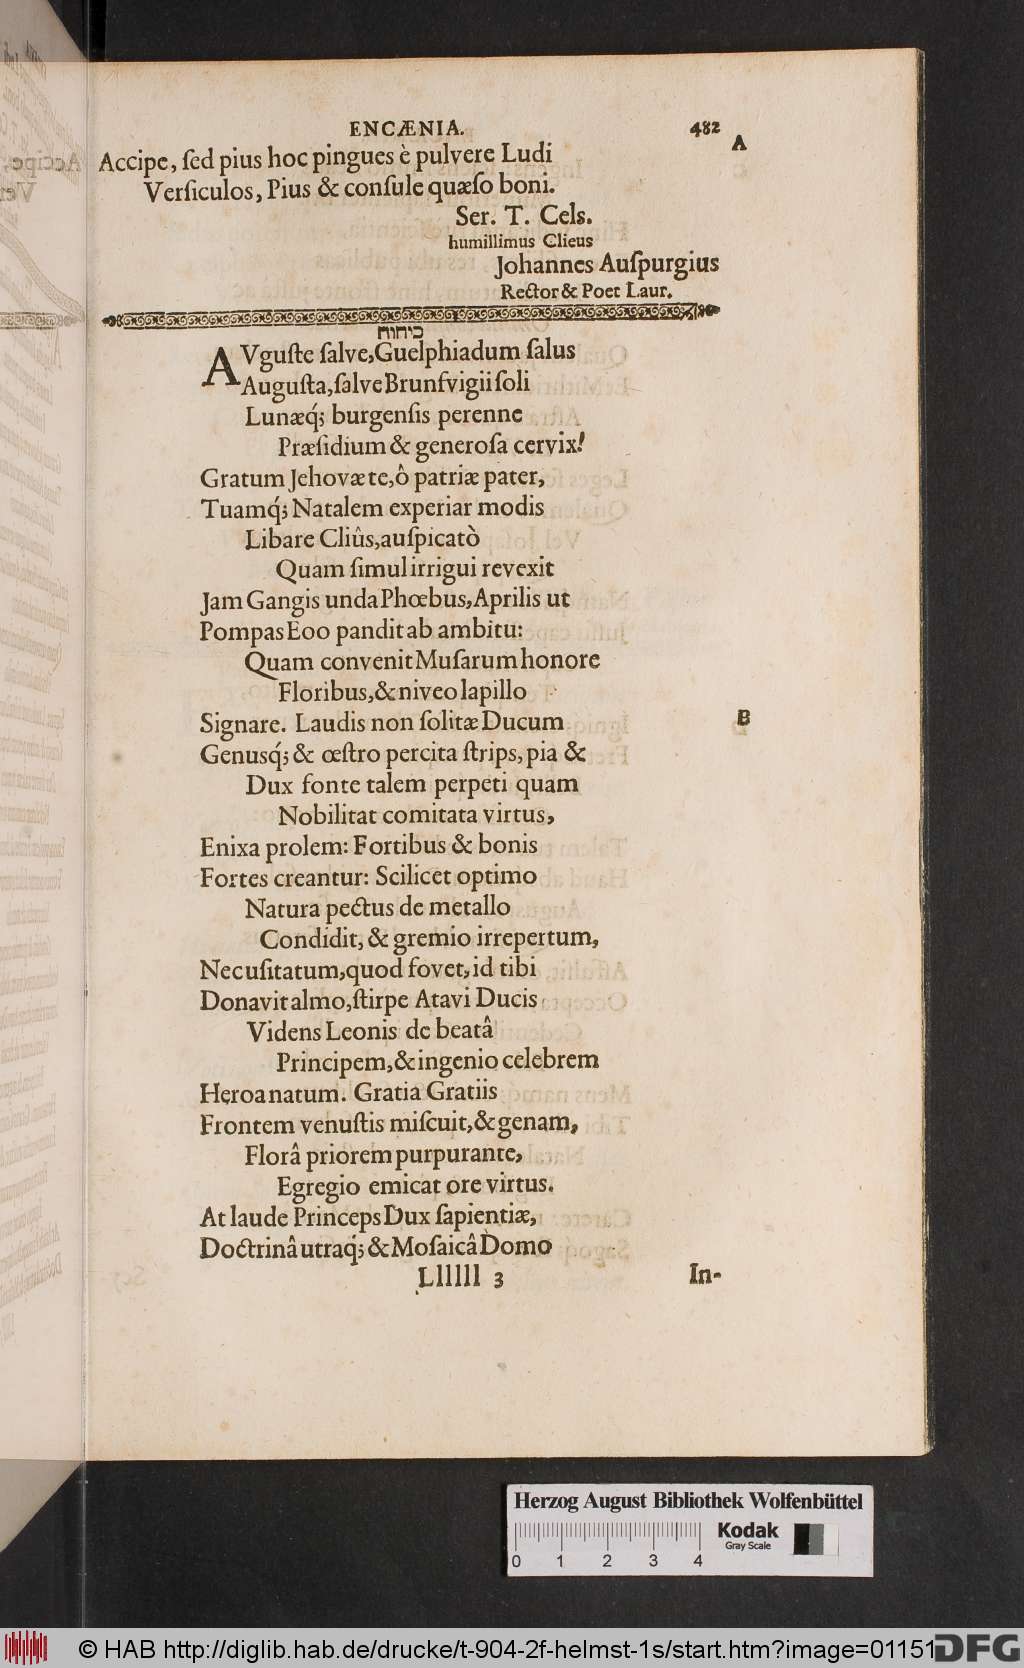 ENCÆNIA.
482
A
Accipe, ſed pius hoc pingues è pulvere Ludi
Verſiculos, Pius & conſule quæſo boni.
Ser. T. Cels.
humillimus Clieus
Johannes Auſpurgius
Rector & Poet Laur.
ביהוה
AVguſte ſalve, Guelphiadum ſalus
Auguſta, ſalve Brunſvigii ſoli
Lunæq́; burgenſis perenne
Præſidium & generoſa cervix!
Gratum Jehovæ te, ô patriæ pater,
Tuamq́; Natalem experiar modis
Libare Cliûs, auſpicatò
Quam ſimul irrigui revexit
Jam Gangis unda Phœbus, Aprilis ut
Pompas Eoo pandit ab ambitu:
Quam convenit Muſarum honore
Floribus, & niveo lapillo
Signare. Laudis non ſolitæ Ducum
B
Genusq́; & œſtro percita ſtrips, pia &
Dux fonte talem perpeti quam
Nobilitat comitata virtus,
Enixa prolem: Fortibus & bonis
Fortes creantur: Scilicet optimo
Natura pectus de metallo
Condidit, & gremio irrepertum,
Nec uſitatum, quod fovet, id tibi
Donavit almo, ſtirpe Atavi Ducis
Videns Leonis de beatâ
Principem, & ingenio celebrem
Heroa natum. Gratia Gratiis
Frontem venuſtis miſcuit, & genam,
Florâ priorem purpurante,
Egregio emicat ore virtus.
At laude Princeps Dux ſapientiæ,
Doctrinâ utraq́; & Moſaicâ Domo
Llllll 3
In-
Herzog August Bibliothek Wolfenbüttel
0 1 2 3 4
Kodak
Gray Scale
© HAB http://diglib.hab.de/drucke/t-904-2f-helmst-1s/start.htm?image=01151
DFG